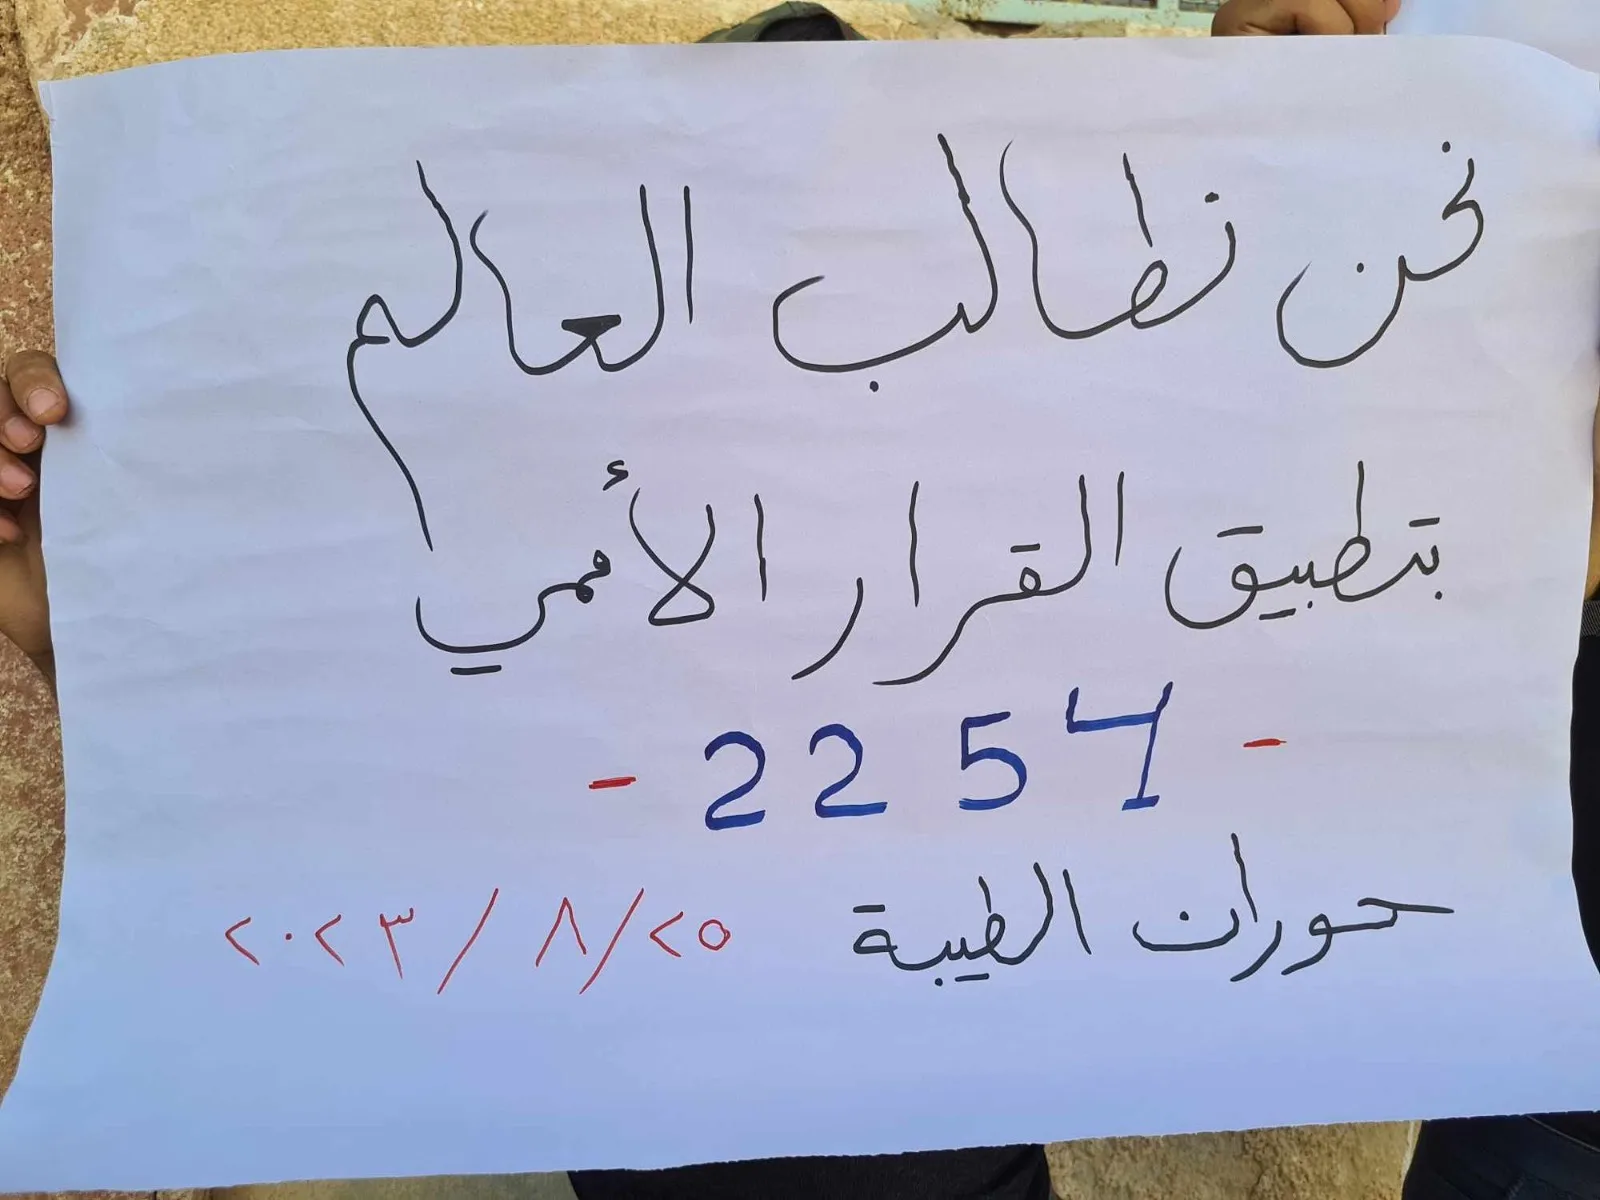 نحن نطالب العالم
بتطبيق القرار الأممي
- 2254 -
حوران الطيبة ٢٥/٨/٢٠٢٣